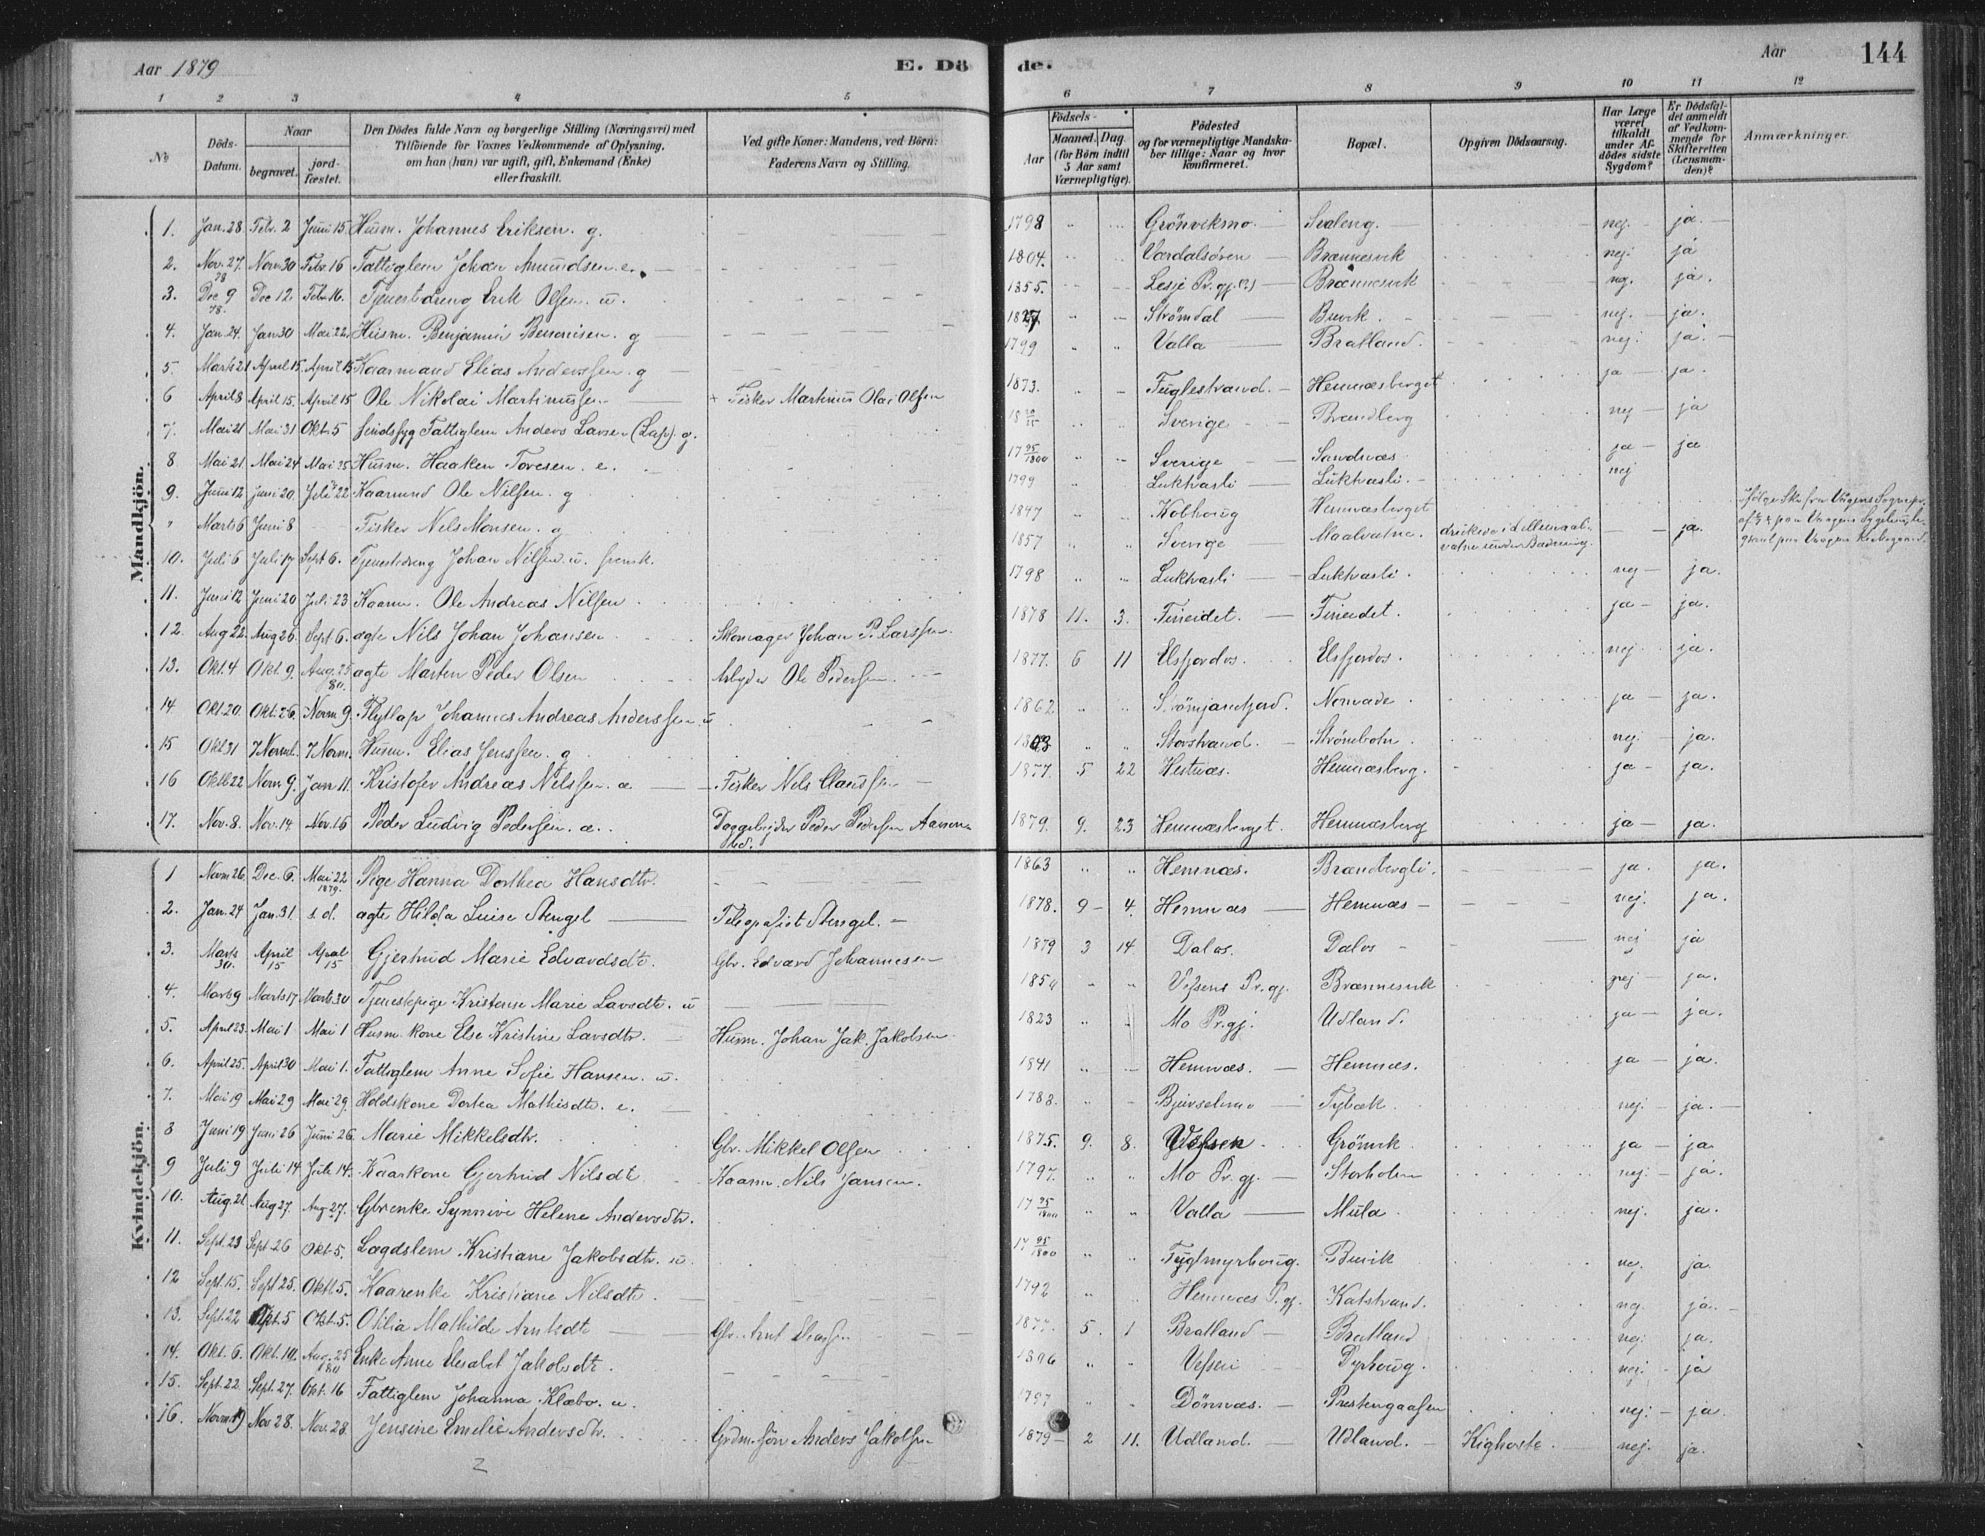 Aar 1879
E. Dö
de.
Aar
144
1 2 3 4 5 6 7 8 9 10 11 12
No
Döds-Datum.
Naar
begravet.
jord-fæstet.
Den Dödes fulde Navn og borgerlige Stilling (Næringsvei) med
Tilföiende for Voxnes Vedkommende af Oplysning,
om han (hun) var ugift, gift, Enkemand (Enke)
eller fraskilt.
Ved gifte Koner: Mandens, ved Börn:
Faderens Navn og Stilling.
Födsels-
Aar
Maaned.
Dag.
(for Börn indtil
5 Aar samt
Værnepligtige).
Födested
og for værnepligtige Mandska-
ber tillige: Naar og hvor
konfirmeret.
Bopæl.
Opgiven Dödsaarsag.
Har Læge
været
tilkaldt
under Af-
dödes sidste
Sygdom?
Er Dödsfal-
det anmeldt
af Vedkom-
mende for
Skifteretten
(Lensman-
den)?
Anmærkninger.
Mandkjön.
1. Jan. 28 Febr. 2 Juni 15 Husm. Johannes Eriksen. g. 1798 Grönviksmo Sæleng. nej. ja.
2. Nov. 27. 78 Nov. 30 Febr. 16 Fattiglem Johan Amundsen. e. 1804. Værdalsören Brænnesvik nej. ja
3. Dec 9 78. Dec 12. Febr. 16. Tjenestdreng Erik Olsen. u. 1855. Lesje Pr.gj. (?) Brænnesvik nej. ja.
4. Jan. 24. Jan 30 Mai 22. Husm. Benjamin Benonisen. g 1827 Strömdal Buvik. nej. ja.
5. Marts 21 April 15. April 15 Kaarmand Elias Anderssen. g 1799 Valla Bratland. nej. ja.
6 April 8 April 15. April 15 Ole Nikolai Martinussen Fisker Martinus Olai Olsen 1873. Fuglestrand. Hemnæsberget ja ja.
7. Mai 21 Mai 31 Okt. 5 sindssyg Fattiglem Anders Larsen (Lap). g. Sverige Brændberg nej ja
8 Mai 21 Mai 24 Mai 25 Husm. Haaken Toresen. e. 1795/1800 Sverige Sandnæs ja ja
9. Juni 12 Juni 20. Juli 22 Kaarmd Ole Nilsen. g 1799 Lukhasli Lukhasli. nej
" Marts 6 Juni 8 Fisker Nils Monsen. g 1847 Kobhoug Hemnæsberget
10. Juli 6 Juli 17 Sept 6. Tjenestdreng Johan Nilsen. u. svensk. 1857 Sverige Maalvatne. ja.
11. Juni 12 Juni 20 Juli 23 Kaarm. Ole Andreas Nilsen 1798 Lukhasli Lukhasli. nej ja.
12. Aug 22. Aug 26. Sept 6. ægte Nils Johan Johansen Skomager Johan P. Larssen. 1878 11. 3. Fineidet. Fineidet. ja ja.
13. Okt. 4 Okt. 9. Aug. 25 80. ægte Marten Peder Olsen Arbeider Ole Pedersen. 1877. 6 11 Elsfjordos. Elsfjordos. nej. ja.
14. Okt 20. Okt. 26. Novm 9. Flytlap Johannes Andreas Anderssen u 1862 Norvade. ja ja.
15 Okt 31 7 Novmb. 7 Novm. Husm. Elias Jenssen. g 1803 Storstrand. Strömbotn. nej ja.
16 Oktb 22 Novm 9. Jan 11. Kristofer Andreas Nilssen. æ Fisker Nils Claussen 1877. 5 22 Hestnæs. Hemnæsberg. ja ja.
17. Nov. 8. Nov. 14. Nov. 16 Peder Ludvig Pedersen. æ. Daggarbejder Peder Pedersen 1879. 9. 23 Hemnæsberget. Hemnæsberg ja ja.
Kvindekjön.
1 Novm 26. Dec. 6. Mai 22 1879. Pige Hanna Dorthea Hansdtr. 1863 Hemnæs. Brændbergli. ja. ja.
2. Jan. 24 Jan. 31. s. d. ægte Hilda Luise Stengel Telegrafist Stengel. 1878. 9 4. Hemnæs Hemnæs nej. ja.
3. Marts 30. April 15 April 15 Gjertrud Marie Edvardsdtr. Gbr. Edvard Johannesen 1879 3 14. Dalos. Dalos nej ja
4. Marts 9 Marts 17 Marts 30 Tjenestpige Kristense Marie Larsdtr. u Vefsens Pr.gj. Brænnesvik nej ja.
5. April 23. Mai 1 Mai 1 Husm. kone Else Kristine Larsdtr. Husm. Johan Jak. Jakobsen 1823 Mo Pr.gj. Udland. ja ja.
6. April 25. April 30 Mai 1. Fattiglem Anne Sofie Hansen. u. 1841 Hemnæs. Hemnæs. ja ja.
7. Mai 19 Mai 29 Mai 29. Holdskone Dortea Mathisdtr. e. 1788. Tybæk. nej. ja.
8 Juni 19 Juni 26 Juni 26. Marie Mikkelsdtr. Gbr. Mikkel Olsen 1875. 9. 8. Vefsen Grönvik ja ja.
9 Juli 9 Juli 14 Juli 14. Kaarkone Gjertrud Nilsdt. Kaarm. Nils Jansen. 1797. Mo Pr.gj. Storholm nej. ja.
10. Aug. 21 Aug 27. Aug 27. Gbrenke Synnive Helene Andersdtr. 1795/1800 Valla Mula. nej. ja.
11. Sept. 23 Sept. 26 Okt. 5. Lægdslem Kristiane Jakobsdtr. u. 1795/1800 Fuglmyrhoug. Buvik nej. ja.
12 Sept. 15. Sept 25. Okt. 5. Kaarenke Kristiane Nilsdtr. 1792 Hemnæs P.gj. Katstrand. nej. ja.
13. Sept. 22 Okt. 5 Okt. 5. Otilia Mathilde Arntsdtr Gbr. Arnt 1877. 5. 1 Bratland Bratland nej. ja.
14. Okt. 6. Okt. 14. Aug. 25 80 Enke Anne Elesabet Jakobsdtr. 1806 Vefsen Dyrhoug. nej. ja
15. Sept. 22 Sept. 27. Okt. 16 Fattiglem Johanna Klæbo. u. 1797 Dönnæs. Prestengaasen nej. ja.
16. Novm 19 Nov 28. Nov. 28. Jensine Emelie Andersdtr. Grdm. sön Anders Jakobsen 1879 2 11. Udland. Udland. Kighoste. nej. ja.
2